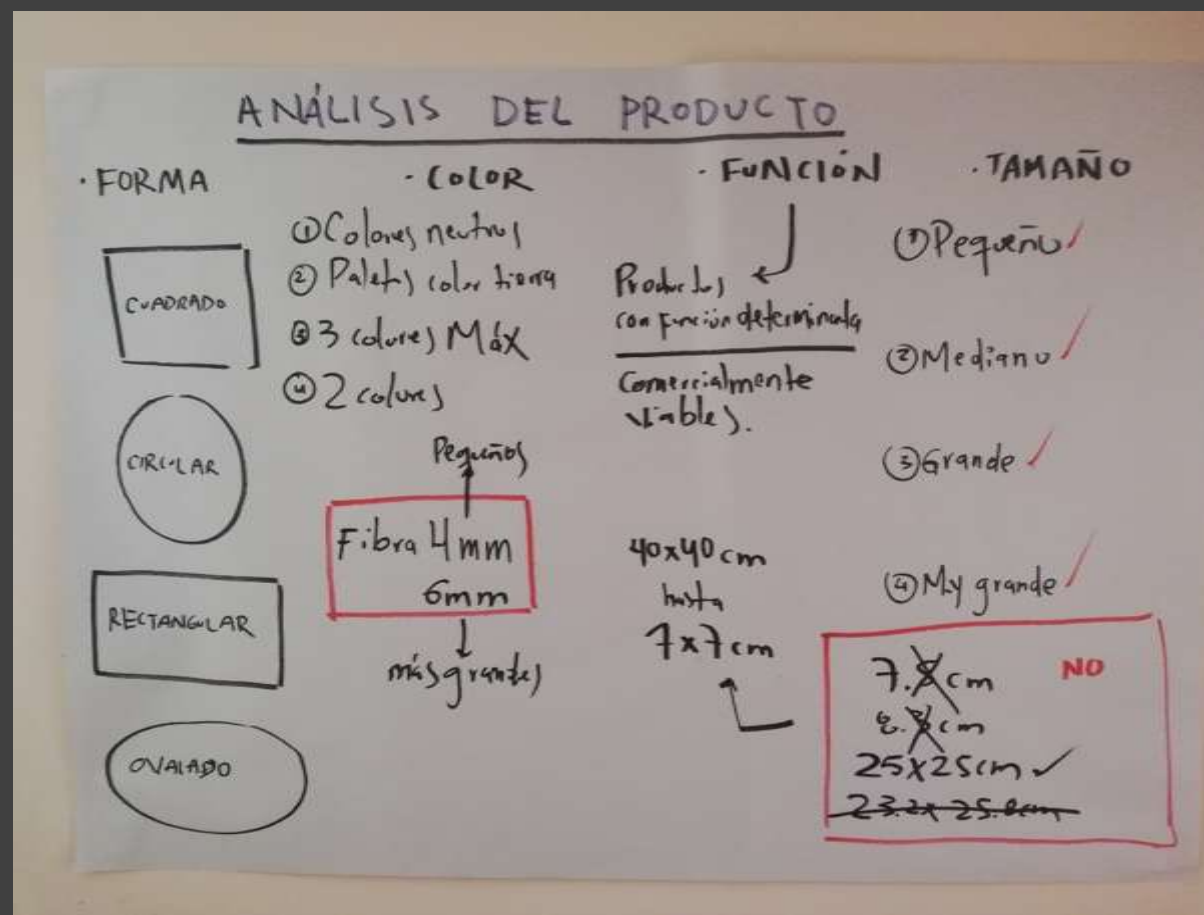 ANÁLISIS DEL PRODUCTO
· FORMA
CUADRADO
CIRCULAR
RECTANGULAR
OVALADO
· COLOR
① Colores neutros
② Paletas color tierra
③ 3 colores Máx
④ 2 colores
Pequeños
Fibra 4mm
6mm
más grandes
· FUNCIÓN
Productos
con función determinada
Comercialmente
viables.
40x40 cm
hasta
7x7cm
· TAMAÑO
① Pequeño ✓
② Mediano ✓
③ Grande ✓
④ Muy grande ✓
NO
25x25cm ✓